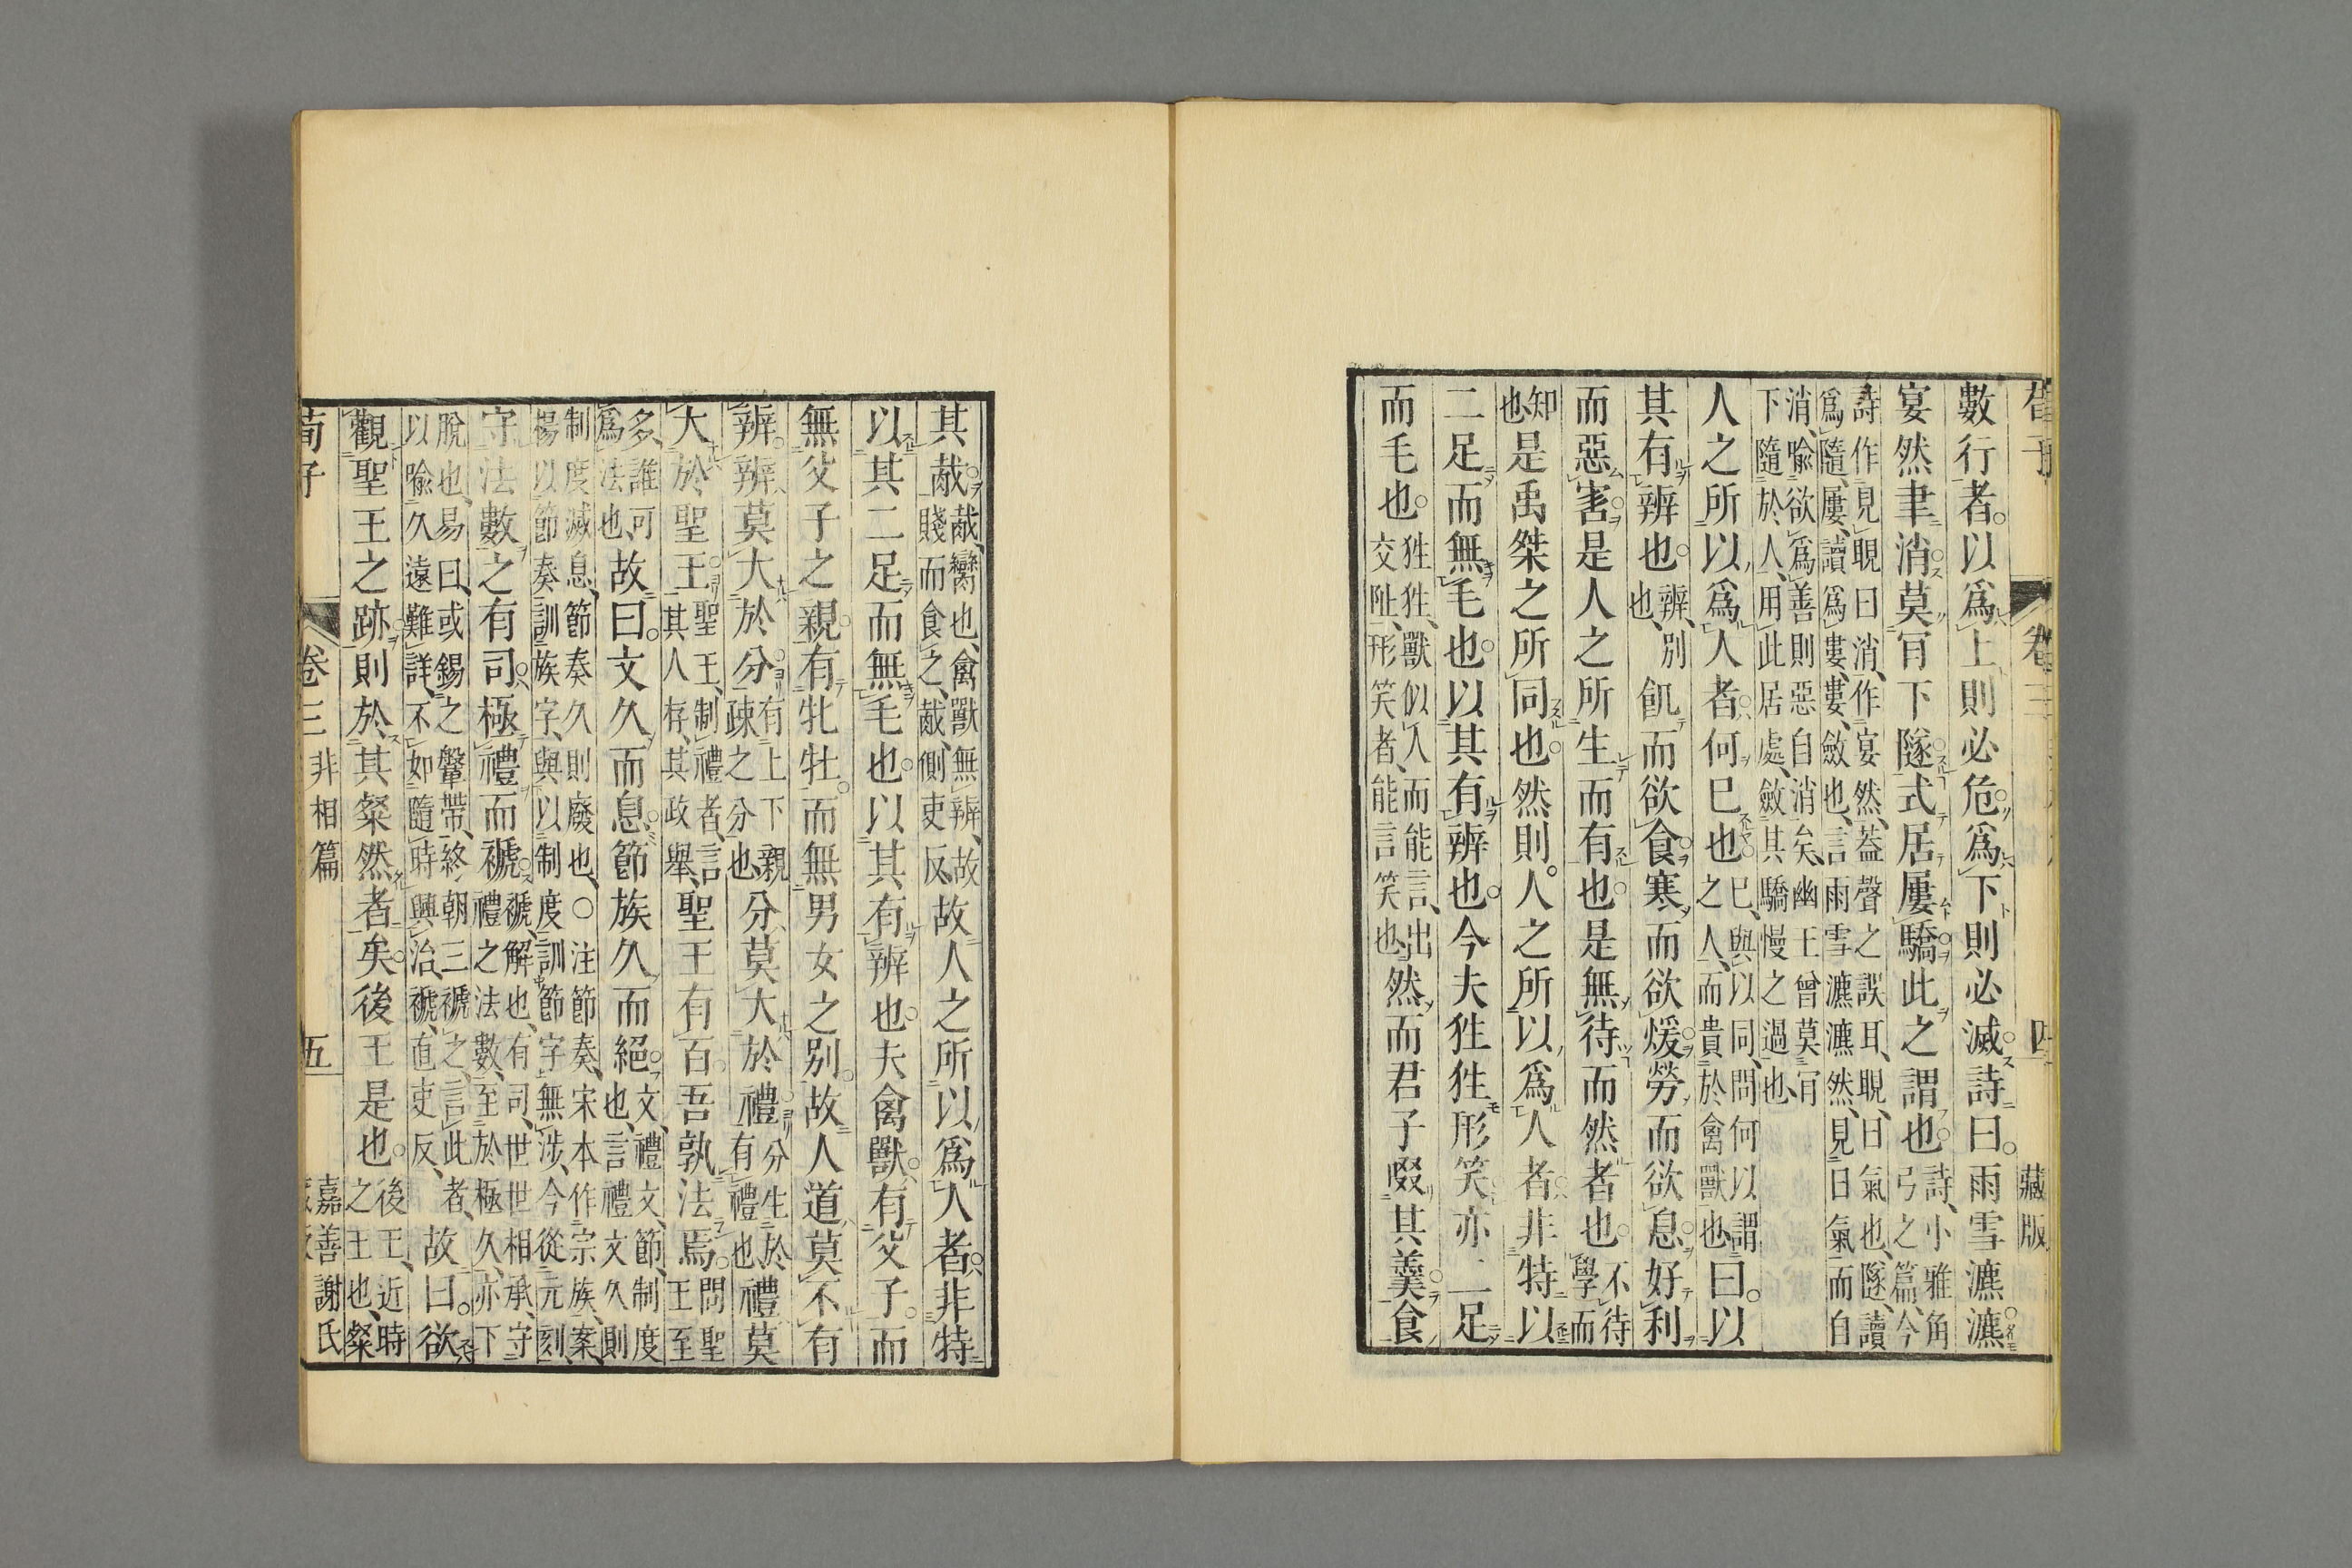 數行者。以爲上則必危。爲下則必滅。詩曰。雨雪瀌瀌
宴然聿消。莫肎下隧。式居屢驕。此之謂也。詩、小雅角弓之篇、今
詩作見晛曰消、作宴然、葢聲之誤耳、晛、日氣也、隧、讀爲隨、屢、讀爲婁、婁、斂也、言雨雪瀌瀌然、見日氣而自
消、喻欲爲善則惡自消矣、幽王曾莫肎下隨於人、用此居處、斂其驕慢之過也
人之所以爲人者。何巳也。巳、與以同、問何以謂之人、而貴於禽獸也、曰。以
其有辨也。辨、別也、飢而欲食。寒而欲煖。勞而欲息。好利
而惡害。是人之所生而有也。是無待而然者也。不待學而
知也、是禹桀之所同也。然則。人之所以爲人者。非特以
二足而無毛也。以其有辨也。今夫狌狌形笑。亦二足
而毛也。狌狌、獸似人而能言、出交阯、形笑者、能言笑也、然而君子啜其羹。食
荀子
卷三
四
藏版
其胾。胾、臠也、禽獸無辨、故賤而食之、胾、側吏反、故人之所以爲人者。非特
以其二足而無毛也。以其有辨也。夫禽獸。有父子。而
無父子之親。有牝牡。而無男女之別。故人道莫不有
辨。辨、莫大於分。有上下親疎之分也、分、莫大於禮。分生於有禮也、禮、莫
大於聖王。聖王、制禮者、言其人存、其政舉、聖王有百。吾孰法焉。問聖王至
多、誰可爲法也、故曰。文久而息。節族久而絕。文、禮文、節、制度也、言禮文久則
制度滅息、節奏久則廢也、○注節奏、宋本作宗族、案、楊以節奏訓族字、與以制度訓節字無涉、今從元刻、
守法數之有司。極禮而褫。褫、解也、有司、世世相承、守禮之法數、至於極久、亦下
脫也、易曰、或錫之鞶帶、終朝三褫之、言此者、以喻久遠難詳、不如隨時興治、褫、直吏反、故曰。欲
觀聖王之跡。則於其粲然者矣。後王是也。後王、近時之王也、粲
荀子
卷三
非相篇
五
嘉善謝氏